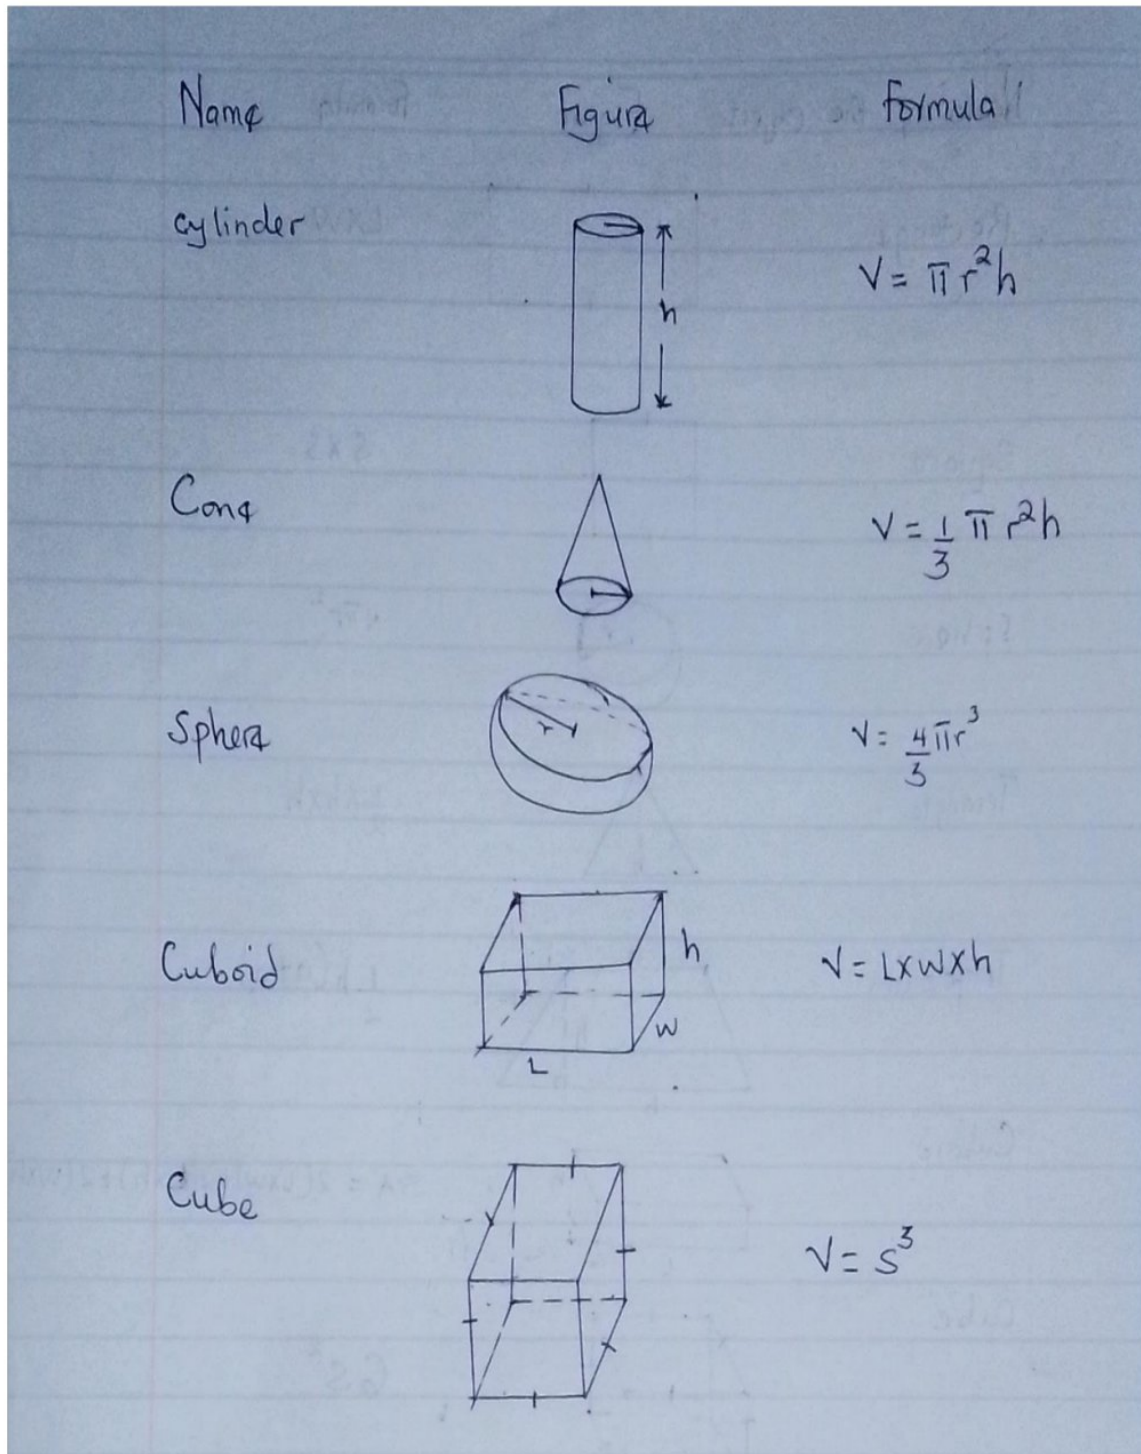 Name Figure Formula
cylinder
h
V = πr²h
Cone
V = 1/3 πr²h
Sphere
r
V = 4/3 πr³
Cuboid
h
w
L
V = L×w×h
Cube
V = s³